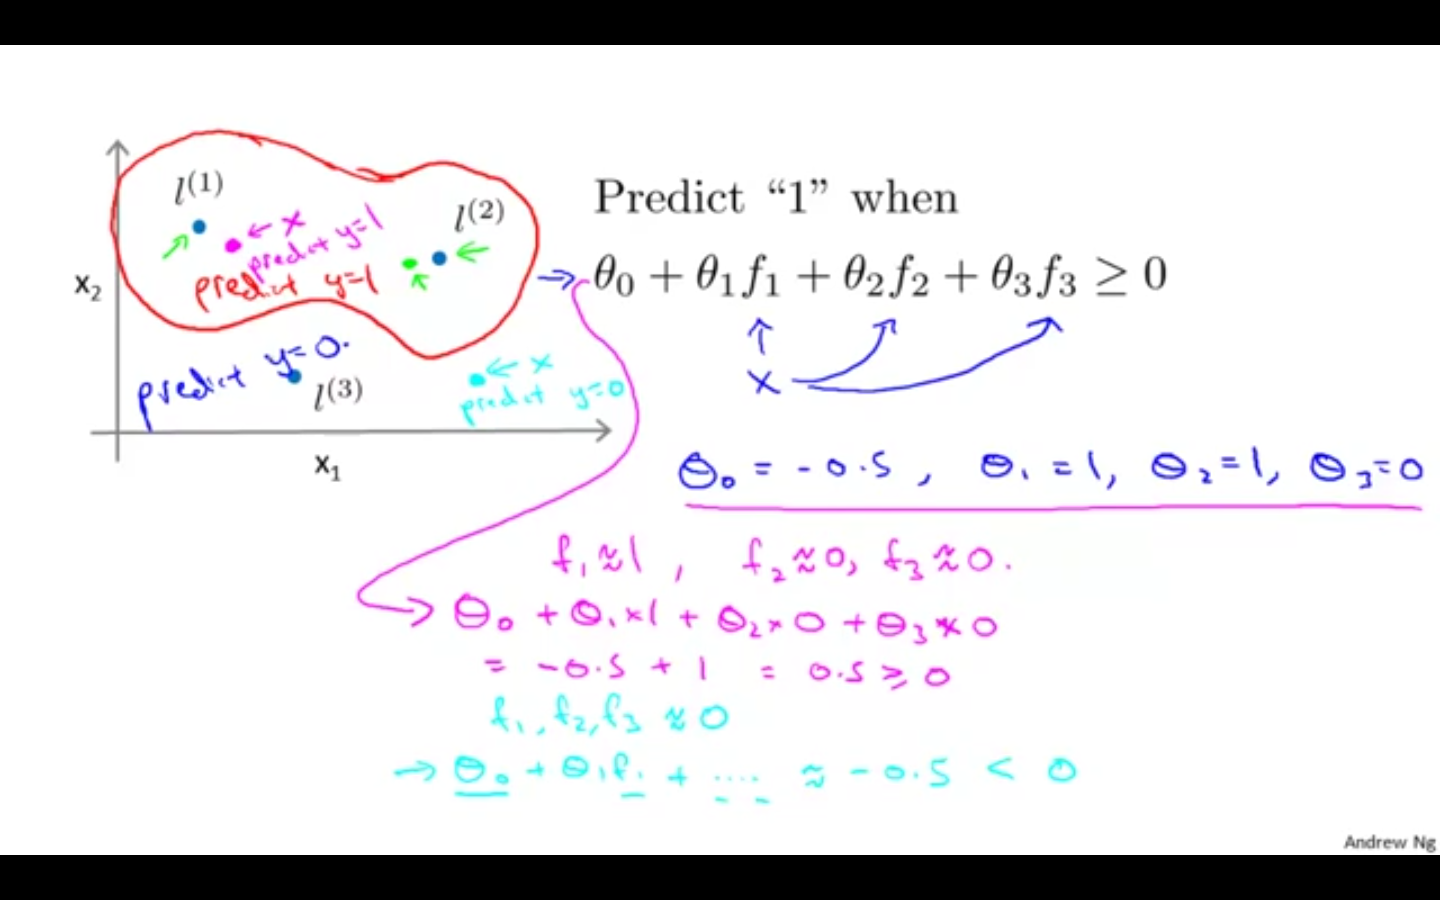 l^(1)
← x
predict y=1
l^(2)
predict y=1
x₂
predict y=0.
l^(3)
← x
predict y=0
x₁
Predict “1” when
θ₀ + θ₁f₁ + θ₂f₂ + θ₃f₃ ≥ 0
x
θ₀ = -0.5, θ₁ = 1, θ₂ = 1, θ₃ = 0
f₁ ≈ 1, f₂ ≈ 0, f₃ ≈ 0.
θ₀ + θ₁×1 + θ₂×0 + θ₃×0
= -0.5 + 1 = 0.5 ≥ 0
f₁, f₂, f₃ ≈ 0
→ θ₀ + θ₁f₁ + .... ≈ -0.5 < 0
Andrew Ng